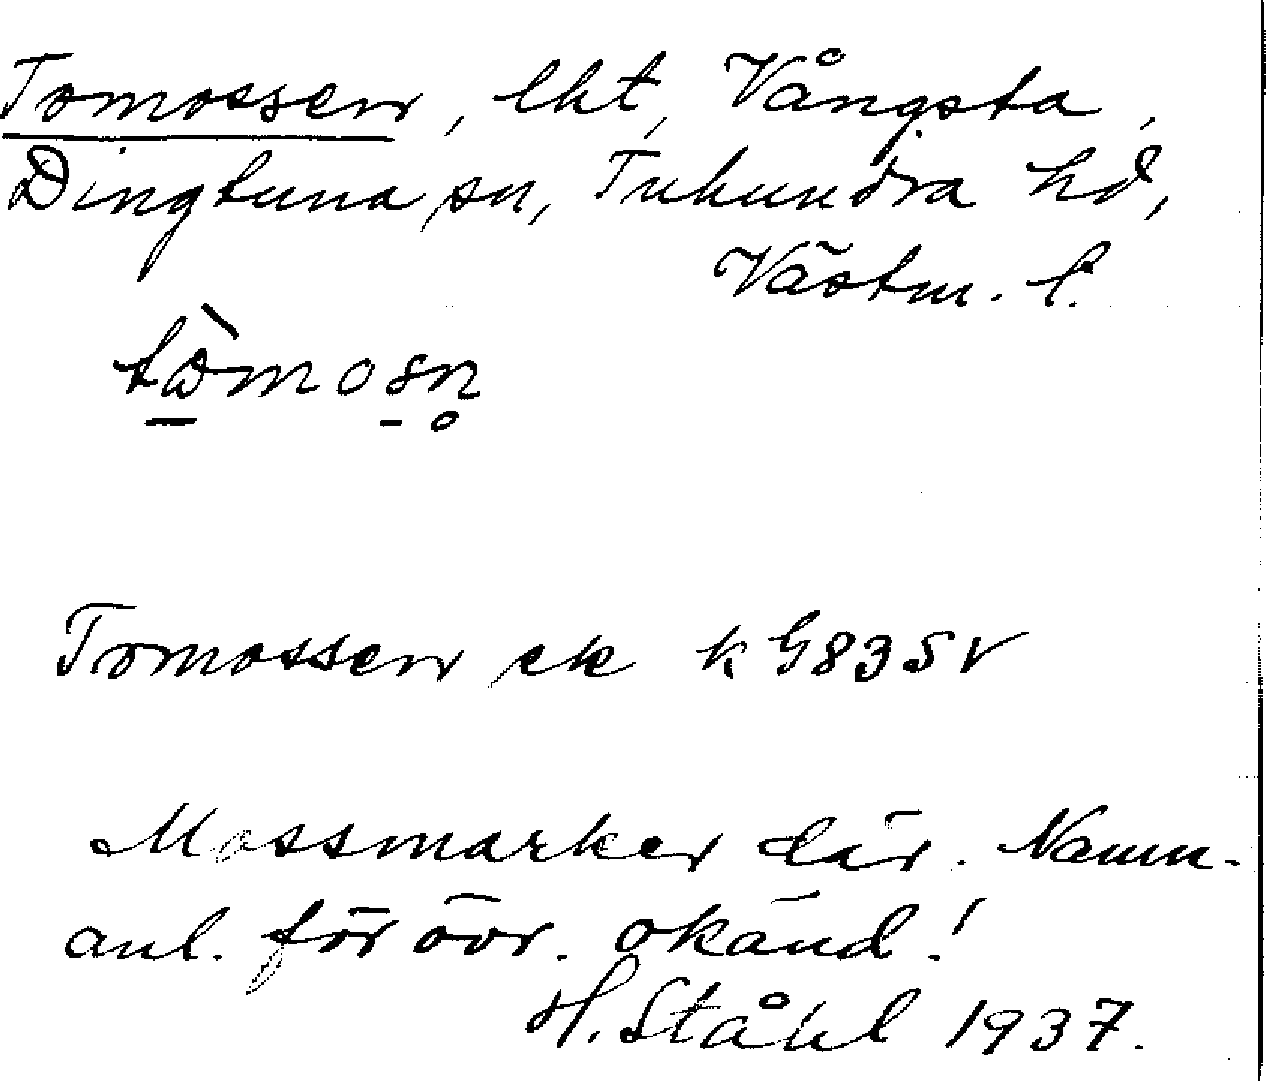 Tomossen, lht, Vångsta,
Dingtuna sn, Tuhundra hd,
Västm. l.
Tomossen ek k G83SV
Mossmarker där. Namn-
anl. för övr. okänd!
H. Ståhl 1937.